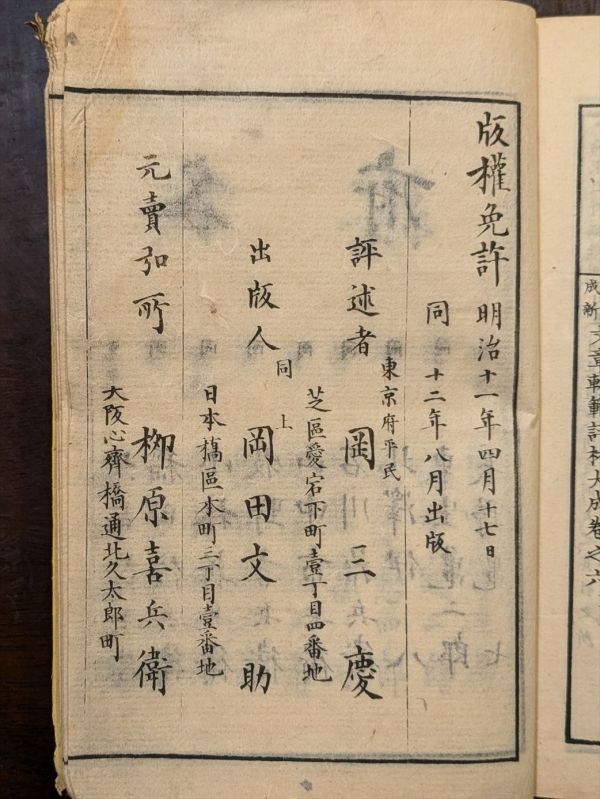 版權免許 明治十一年四月十七日
同 十二年八月出版
評述者 東京府平民 岡三慶
芝區愛宕下町壹丁目四番地
出版人 同上 岡田文助
日本橋區本町三丁目壹番地
元賣弘所 柳原喜兵衛
大阪心齊橋通北久太郎町
文章軌範評林大成卷之六